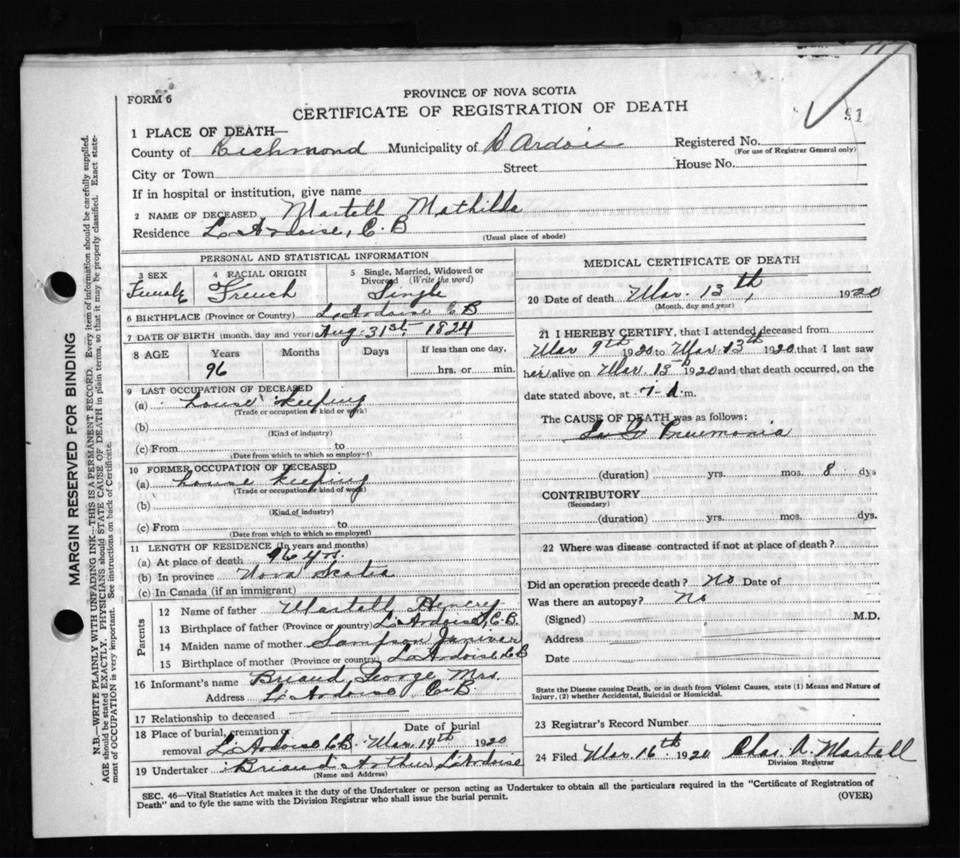 PROVINCE OF NOVA SCOTIA
FORM 6
CERTIFICATE OF REGISTRATION OF DEATH
91
1 PLACE OF DEATH—
County of Richmond Municipality of L Ardois Registered No.
(For use of Registrar General only)
City or Town Street House No.
If in hospital or institution, give name
2 NAME OF DECEASED Martell Mathilda
Residence L. Ardoise, C. B
(Usual place of abode)
PERSONAL AND STATISTICAL INFORMATION
3 SEX 4 RACIAL ORIGIN 5 Single, Married, Widowed or
Divorced (Write the word)
Female French Single
6 BIRTHPLACE (Province or Country) L. Ardoise C B
7 DATE OF BIRTH (month, day and year) Aug. 31st 1824
8 AGE Years Months Days If less than one day,
96 hrs. or min.
9 LAST OCCUPATION OF DECEASED
(a) house keeping
(Trade or occupation or kind or work)
(b)
(Kind of industry)
(c) From to
(Date from which to which so employed)
10 FORMER OCCUPATION OF DECEASED
(a) house keeping
(Trade or occupation or kind of work)
(b)
(Kind of industry)
(c) From to
(Date from which to which so employed)
11 LENGTH OF RESIDENCE (In years and months)
(a) At place of death 96 yrs.
(b) In province Nova Scotia
(c) In Canada (if an immigrant)
Parents
12 Name of father Martell Henery
13 Birthplace of father (Province or country) L. Ardoise, C. B.
14 Maiden name of mother Sampson
15 Birthplace of mother (Province or country) L. Ardoise C B
16 Informant's name Briand George Mrs.
Address L. Ardoise C. B.
17 Relationship to deceased
18 Place of burial, cremation or Date of burial
removal L. Ardoise C B. Mar 14th 1920
19 Undertaker Briand Arthur L'Ardoise
(Name and Address)
MEDICAL CERTIFICATE OF DEATH
20 Date of death Mar. 13th, 1920
(Month, day and year)
21 I HEREBY CERTIFY, that I attended deceased from
Mar 9th 1920 to Mar 13th 1920 that I last saw
her alive on Mar. 13th 1920 and that death occurred, on the
date stated above, at 7 A m.
The CAUSE OF DEATH was as follows:
La G Pneumonia
(duration) yrs. mos. 8 dys
CONTRIBUTORY
(Secondary)
(duration) yrs. mos. dys.
22 Where was disease contracted if not at place of death?
Did an operation precede death? No Date of
Was there an autopsy? No
(Signed) M.D.
Address
Date
State the Disease causing Death, or in death from Violent Causes, state (1) Means and Nature of
Injury, (2) whether Accidental, Suicidal or Homicidal.
23 Registrar's Record Number
24 Filed Mar 16th 1920 Chas. A. Martell
Division Registrar
SEC. 46—Vital Statistics Act makes it the duty of the Undertaker or person acting as Undertaker to obtain all the particulars required in the "Certificate of Registration of
Death" and to fyle the same with the Division Registrar who shall issue the burial permit.
(OVER)
MARGIN RESERVED FOR BINDING
N.B.—WRITE PLAINLY WITH UNFADING INK—THIS IS A PERMANENT RECORD. Every item of information should be carefully supplied.
AGE should be stated EXACTLY. PHYSICIANS should STATE CAUSE OF DEATH in plain terms, so that it may be properly classified. Exact state-
ment of OCCUPATION is very important. See instructions on back of Certificate.